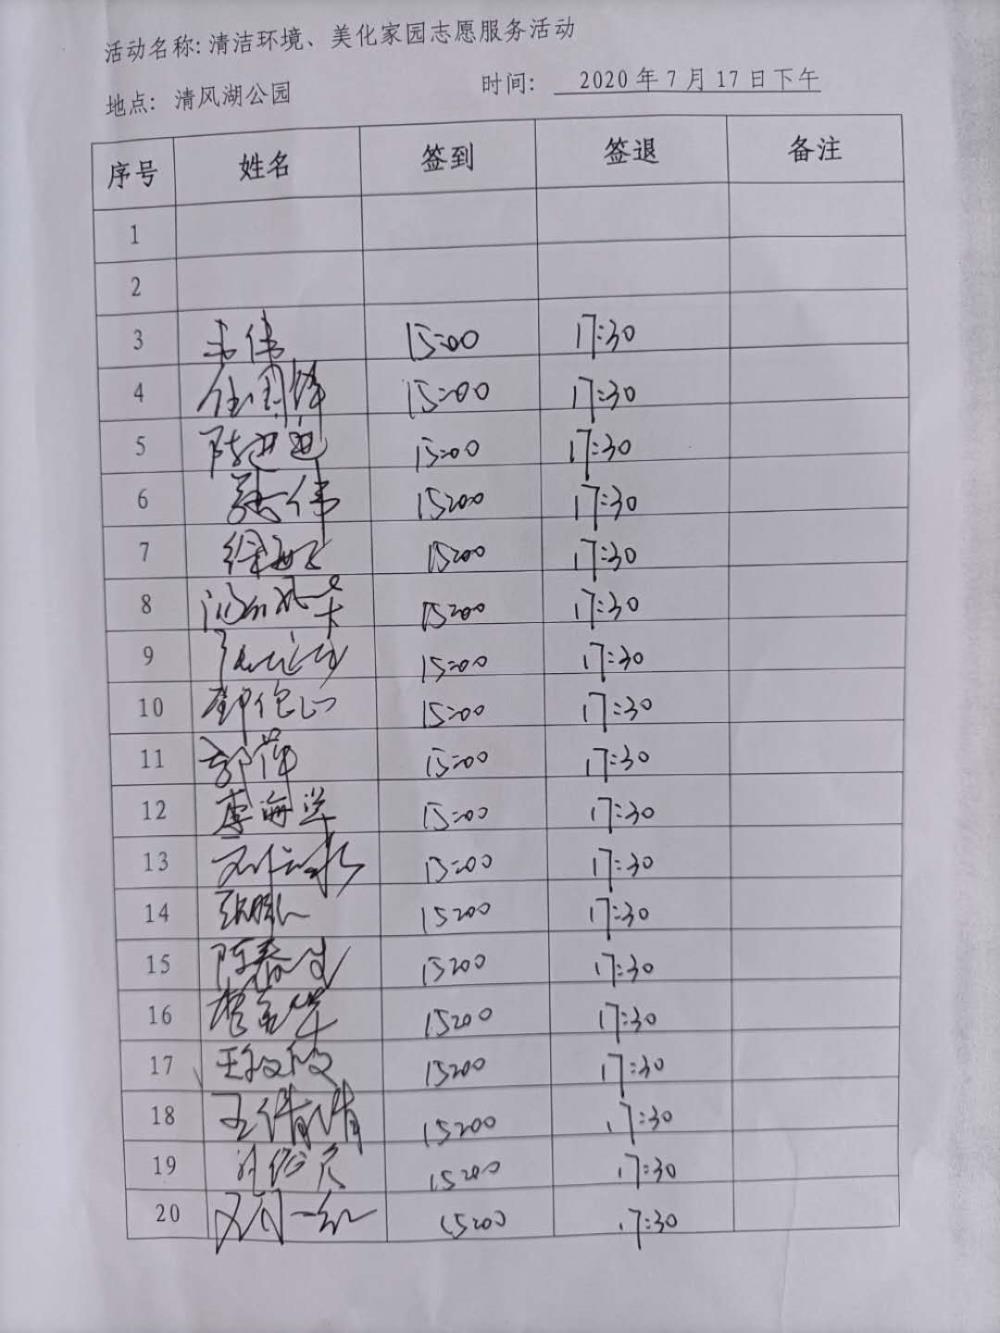 活动名称: 清洁环境、美化家园志愿服务活动
地点: 清风湖公园 时间: 2020年7月17日下午
序号 姓名 签到 签退 备注
1
2
3 韦伟 15:00 17:30
4 任国锋 15:00 17:30
5 陈迪迪 15:00 17:30
6 张伟 15:00 17:30
7 徐 15:00 17:30
8 15:00 17:30
9 15:00 17:30
10 15:00 17:30
11 郭萍 15:00 17:30
12 李海洋 15:00 17:30
13 刘 15:00 17:30
14 张 15:00 17:30
15 陈春 15:00 17:30
16 15:00 17:30
17 王 15:00 17:30
18 王倩倩 15:00 17:30
19 15:00 17:30
20 15:00 17:30